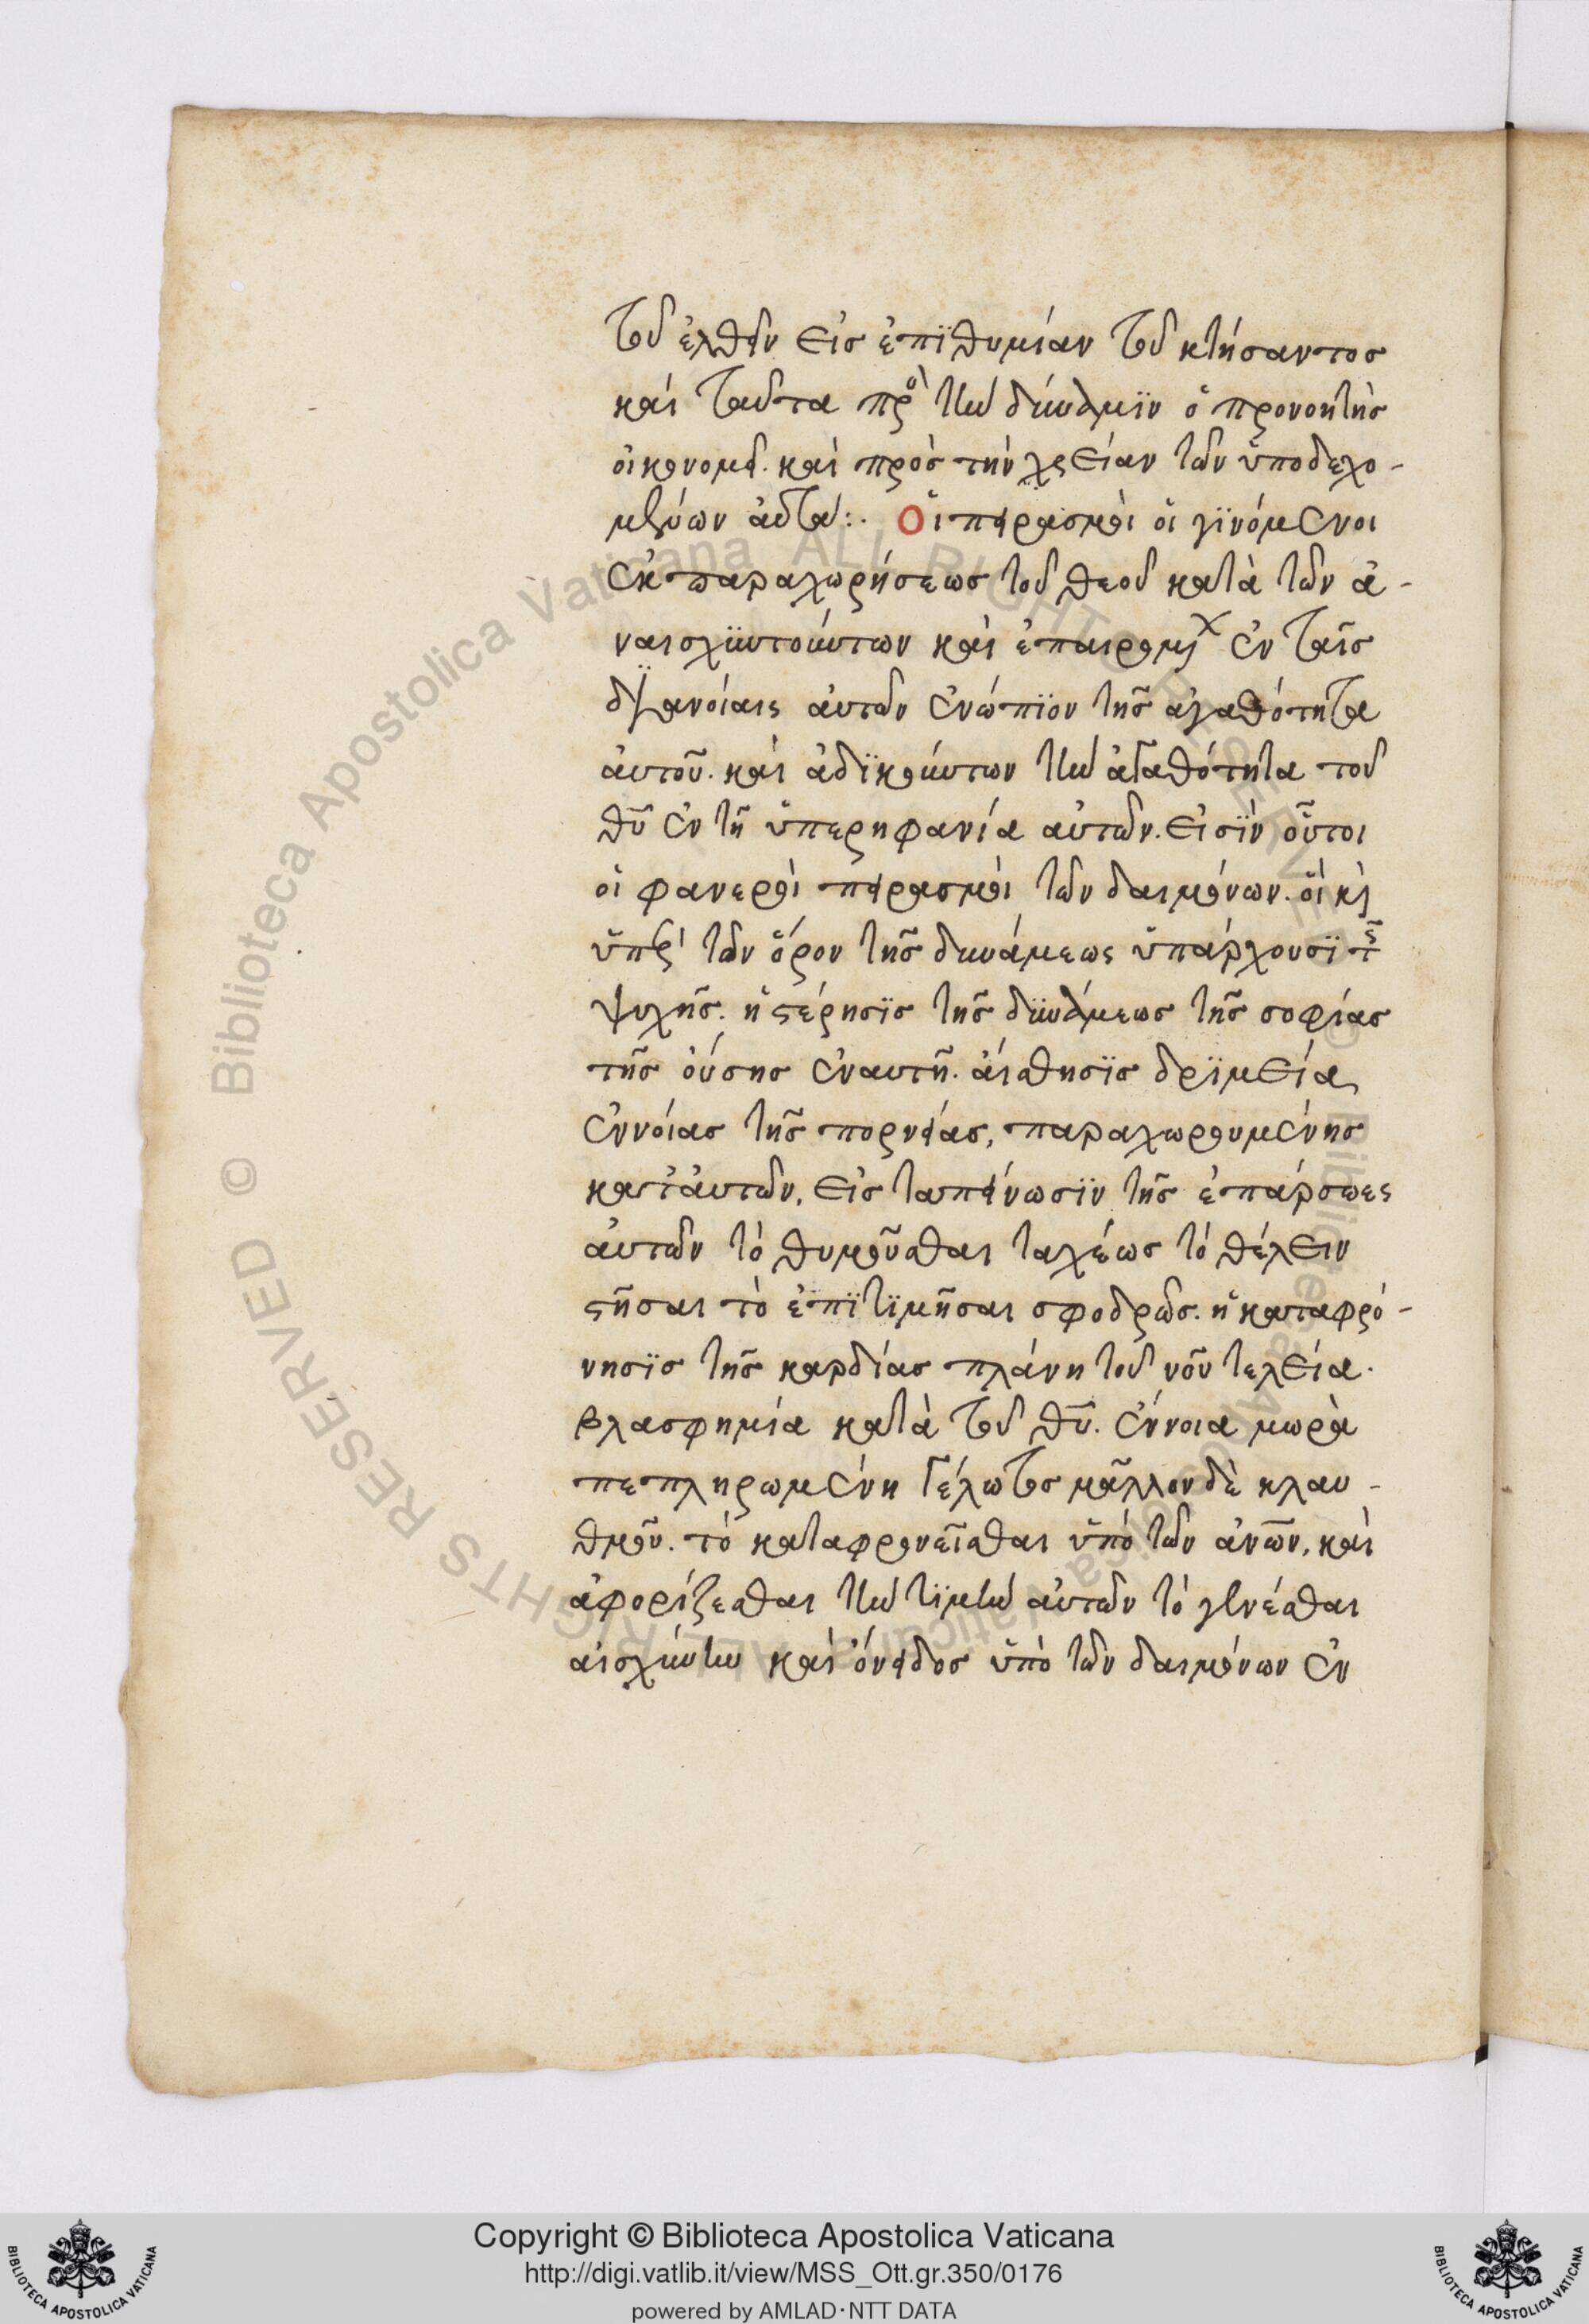 τοῦ ἐλθεῖν εἰς ἐπϊθυμίαν τοῦ κτήσαντος
καί ταῦτα πρὸ τὴν δύναμϊν ὁ προνοητὴς
οἰκονομεῖ. καὶ πρὸς τὴν χρείαν τῶν ὑποδεχο-
μένων ἀυτά:. Οἱ πειρασμοὶ οἱ γϊνόμενοι
ἐκ παραχωρήσεως τοῦ θεοῦ κατὰ τῶν ἀ-
ναισχϋντούντων καὶ ἐπαιρομχ ἐν ταῖς
δϊανοίαις ἀυτῶν ἐνώπϊον τῆς ἀγαθότητα
ἀυτοῦ. καὶ ἀδϊκούντων τὴν ἀγαθότητα τοῦ
θῦ ἐν τῇ ὑπερηφανία αὐτῶν. εἰσϊν οὗτοι
οἱ φανεροὶ πειρασμοὶ τῶν δαιμόνων. οἱ κὶ
ὑπὲρ τῶν ὅρον τῆς δυνάμεως ὑπάρχουσϊ τῆς
ψυχῆς. ἡ στέρησϊς τῆς δϋνάμεως τῆς σοφίας
τῆς οὔσης ἐναυτῇ. ἀίσθησϊς δρϊμεία
ἐννοίας τῆς πορνείας, παραχωρουμένης
κατἀυτῶν. εἰς ταπείνωσϊν τῆς ἐπάρσωες
ἀυτῶν τὸ θυμοῦσθαι ταχέως τὸ θέλειν
στῆσαι τὸ ἐπϊτϊμῆσαι σφοδρῶς. ἡ καταφρό-
νησϊς τῆς καρδίας πλάνη τοῦ νοῦ τελεία.
βλασφημία κατὰ τοῦ θῦ. ἔννοια μωρὰ
πεπληρωμένη γέλωτος μᾶλλον δὲ κλαυ-
θμοῦ. τὸ καταφρονεῖσθαι ὑπὸ τῶν ἀνῶν, καὶ
ἀφορίζεσθαι τὴν τϊμὴν αὐτῶν τὸ γενέσθαι
αἰσχύνην καὶ ὄνειδος ὑπὸ τῶν δαιμόνων ἐν
Copyright © Biblioteca Apostolica Vaticana
http://digi.vatlib.it/view/MSS_Ott.gr.350/0176
powered by AMLAD·NTT DATA